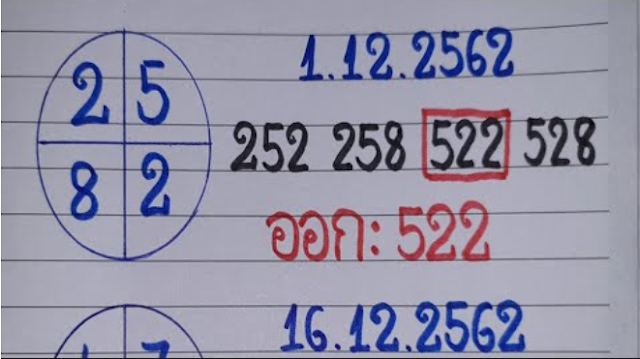 1.12.2562
2 5
252 258 522 528
8 2
ออก: 522
16.12.2562